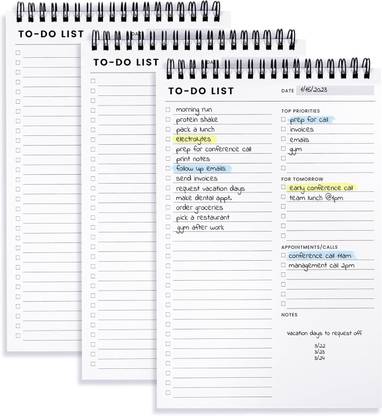 TO-DO LIST
TO-DO LIST
TO-DO LIST
DATE 4/15/2023
morning run
protein shake
pack a lunch
electrolytes
prep for conference call
print notes
follow up emails
send invoices
request vacation days
make dental appt.
order groceries
pick a restaurant
gym after work
TOP PRIORITIES
prep for call
invoices
emails
gym
FOR TOMORROW
early conference call
team lunch @1pm
APPOINTMENTS/CALLS
conference call 11am
management call 2pm
NOTES
Vacation days to request off
3/22
3/23
3/24